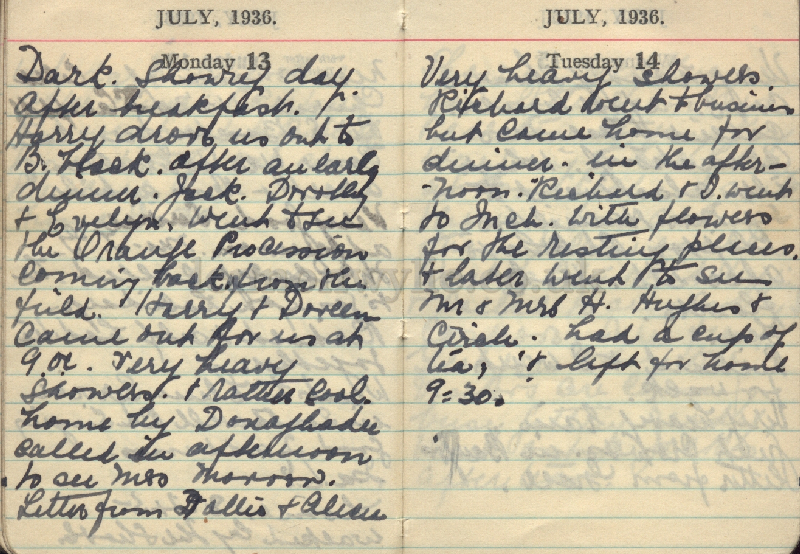 JULY, 1936.
Monday 13
Dark. Showry day
after breakfast.
Harry drove us out to
B. after an early
dinner. Jack. Dorothy
& Evelyn. went to see
the Orange Procession
coming back from the
field. Harry & Doreen
came out for us at
9 oc. very heavy
showers. & rather cool.
home by Donaghadee
called in afternoon
to see Mrs Morrow.
Letter from & Aileen
JULY, 1936.
Tuesday 14
Very heavy showers
Richard went to business
but came home for
dinner. in the after-
-noon. Richard & I. went
to Inch. with flowers
for the resting places.
& later went to see
Mr & Mrs H. Hughes &
had a cup of
tea, & left for home
9=30.